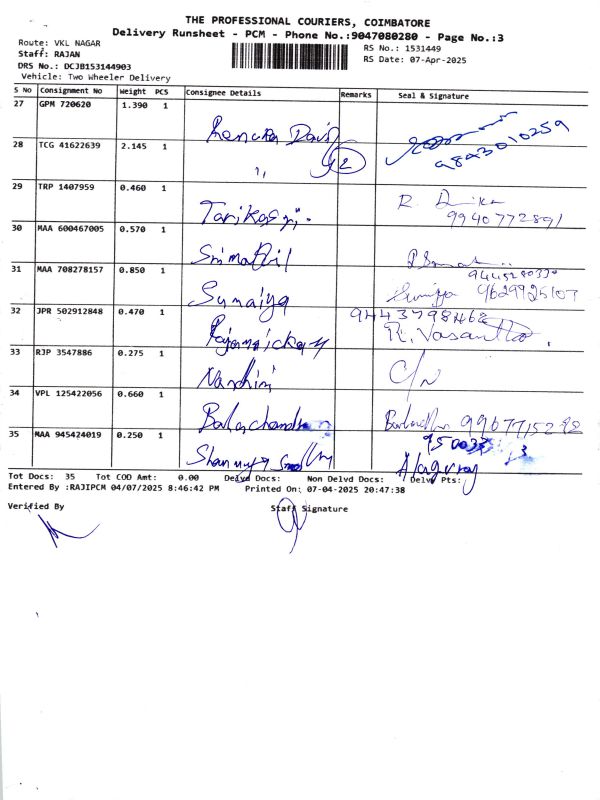 THE PROFESSIONAL COURIERS, COIMBATORE
Delivery Runsheet - PCM - Phone No.:9047080280 - Page No.:3
Route: VKL NAGAR
Staff: RAJAN
DRS No.: DCJB153144903
Vehicle: Two Wheeler Delivery
RS No.: 1531449
RS Date: 07-Apr-2025
S No Consignment No Weight PCS Consignee Details Remarks Seal & Signature
27 GPM 720620 1.390 1 Renuka
9843010259
28 TCG 41622639 2.145 1 " 2
29 TRP 1407959 0.460 1 R.
9940772891
30 MAA 600467005 0.570 1
31 MAA 708278157 0.850 1 Sumaiya 9629925103
32 JPR 502912848 0.470 1 9443798462
R. Vasantha
33 RJP 3547886 0.275 1 C/N
34 VPL 125422056 0.660 1 Balachandr
35 MAA 945424019 0.250 1 Alaguraj
Tot Docs: 35 Tot COD Amt: 0.00 Delvd Docs: Non Delvd Docs: Delvd Pts:
Entered By :RAJIPCM 04/07/2025 8:46:42 PM Printed On: 07-04-2025 20:47:38
Verified By Staff Signature